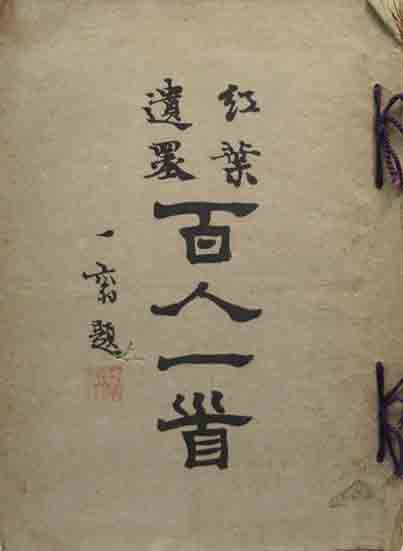 紅葉
遺墨
百人一首
一翁題